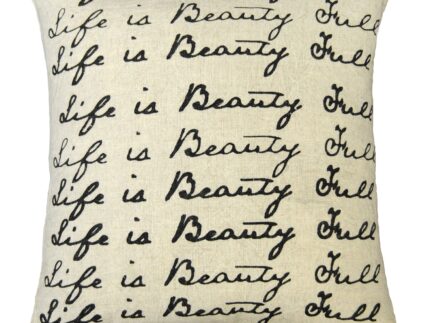 Life is Beauty Full
Life is Beauty Full
Life is Beauty Full
Life is Beauty Full
Life is Beauty Full
Life is Beauty Full
Life is Beauty Full
Life is Beauty Full